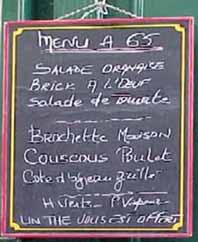 MENU A 65
SALADE ORANAISE
BRICK A L'OEUF
Salade de tomate
Brochette Maison
Couscous Poulet
Cote d'agneau grillé
UN THE VOUS EST OFFERT